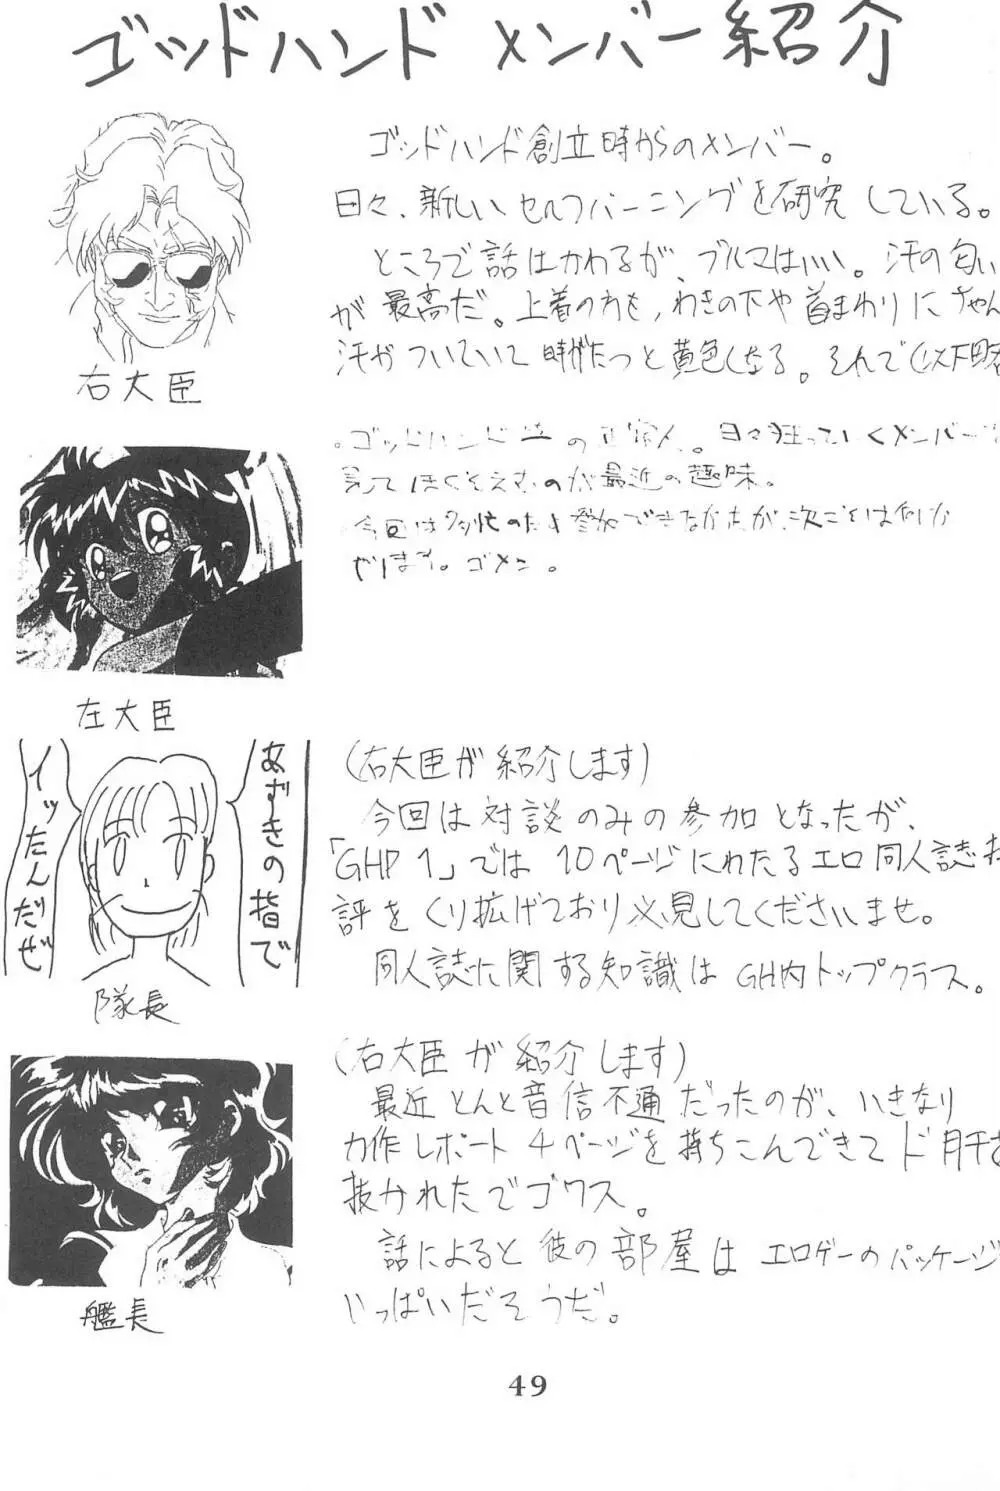 ゴッドハンド メンバー紹介
ゴッドハンド創立時からのメンバー。
日々、新しいセルフバーニングを研究している。
ところで話はかわるが、ブルマはいい。汗の匂い
が最高だ。上着の方も、わきの下や首まわりにちゃん
汗がついていて時がたつと黄色くなる。それで(以下略
右大臣
ゴッドハンド の 。日々狂っていくメンバー
見てほくそえむのが最近の趣味。
今回は多忙のため参加できなかったが、次ごとは何か
やります。ゴメン。
左大臣
あずきの指で
イッたんだぜ
隊長
(右大臣が紹介します)
今回は対談のみの参加となったが、
「GHP1」では10ページにわたるエロ同人誌
評をくり拡げており必見してくださいませ。
同人誌に関する知識はGH内トップクラス。
(右大臣が紹介します)
最近とんと音信不通だったのが、いきなり
力作レポート4ページを持ちこんできてド肝を
抜かれたでゴワス。
話によると彼の部屋はエロゲーのパッケージ
いっぱいだそうだ。
艦長
49